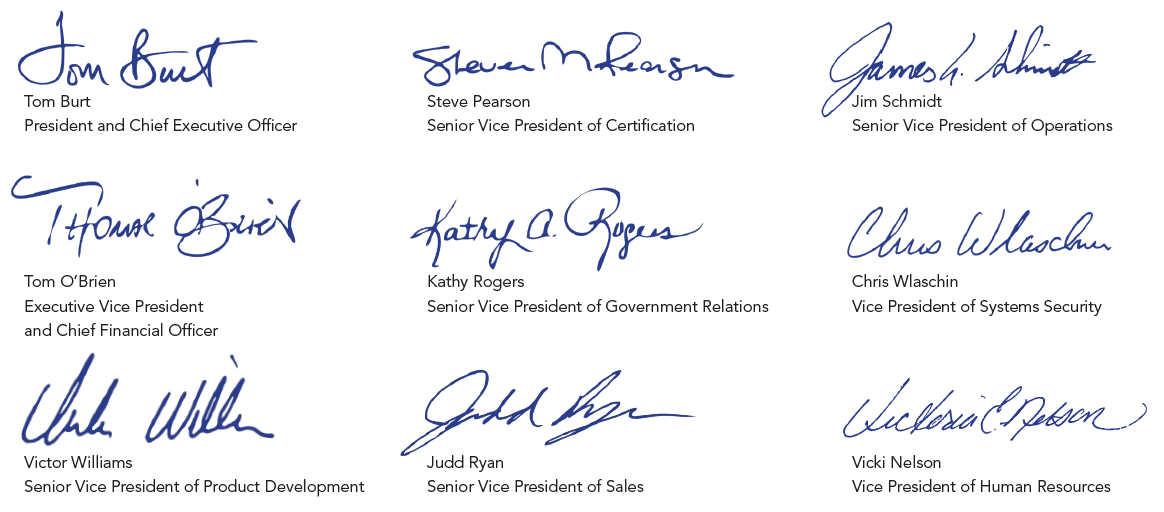 Tom Burt
Steven M Pearson
James L. Schmidt
Tom Burt
President and Chief Executive Officer
Steve Pearson
Senior Vice President of Certification
Jim Schmidt
Senior Vice President of Operations
Thomas O'Brien
Kathy A. Rogers
Chris Wlaschin
Tom O’Brien
Executive Vice President
and Chief Financial Officer
Kathy Rogers
Senior Vice President of Government Relations
Chris Wlaschin
Vice President of Systems Security
Judd Ryan
Victoria E. Nelson
Victor Williams
Senior Vice President of Product Development
Judd Ryan
Senior Vice President of Sales
Vicki Nelson
Vice President of Human Resources